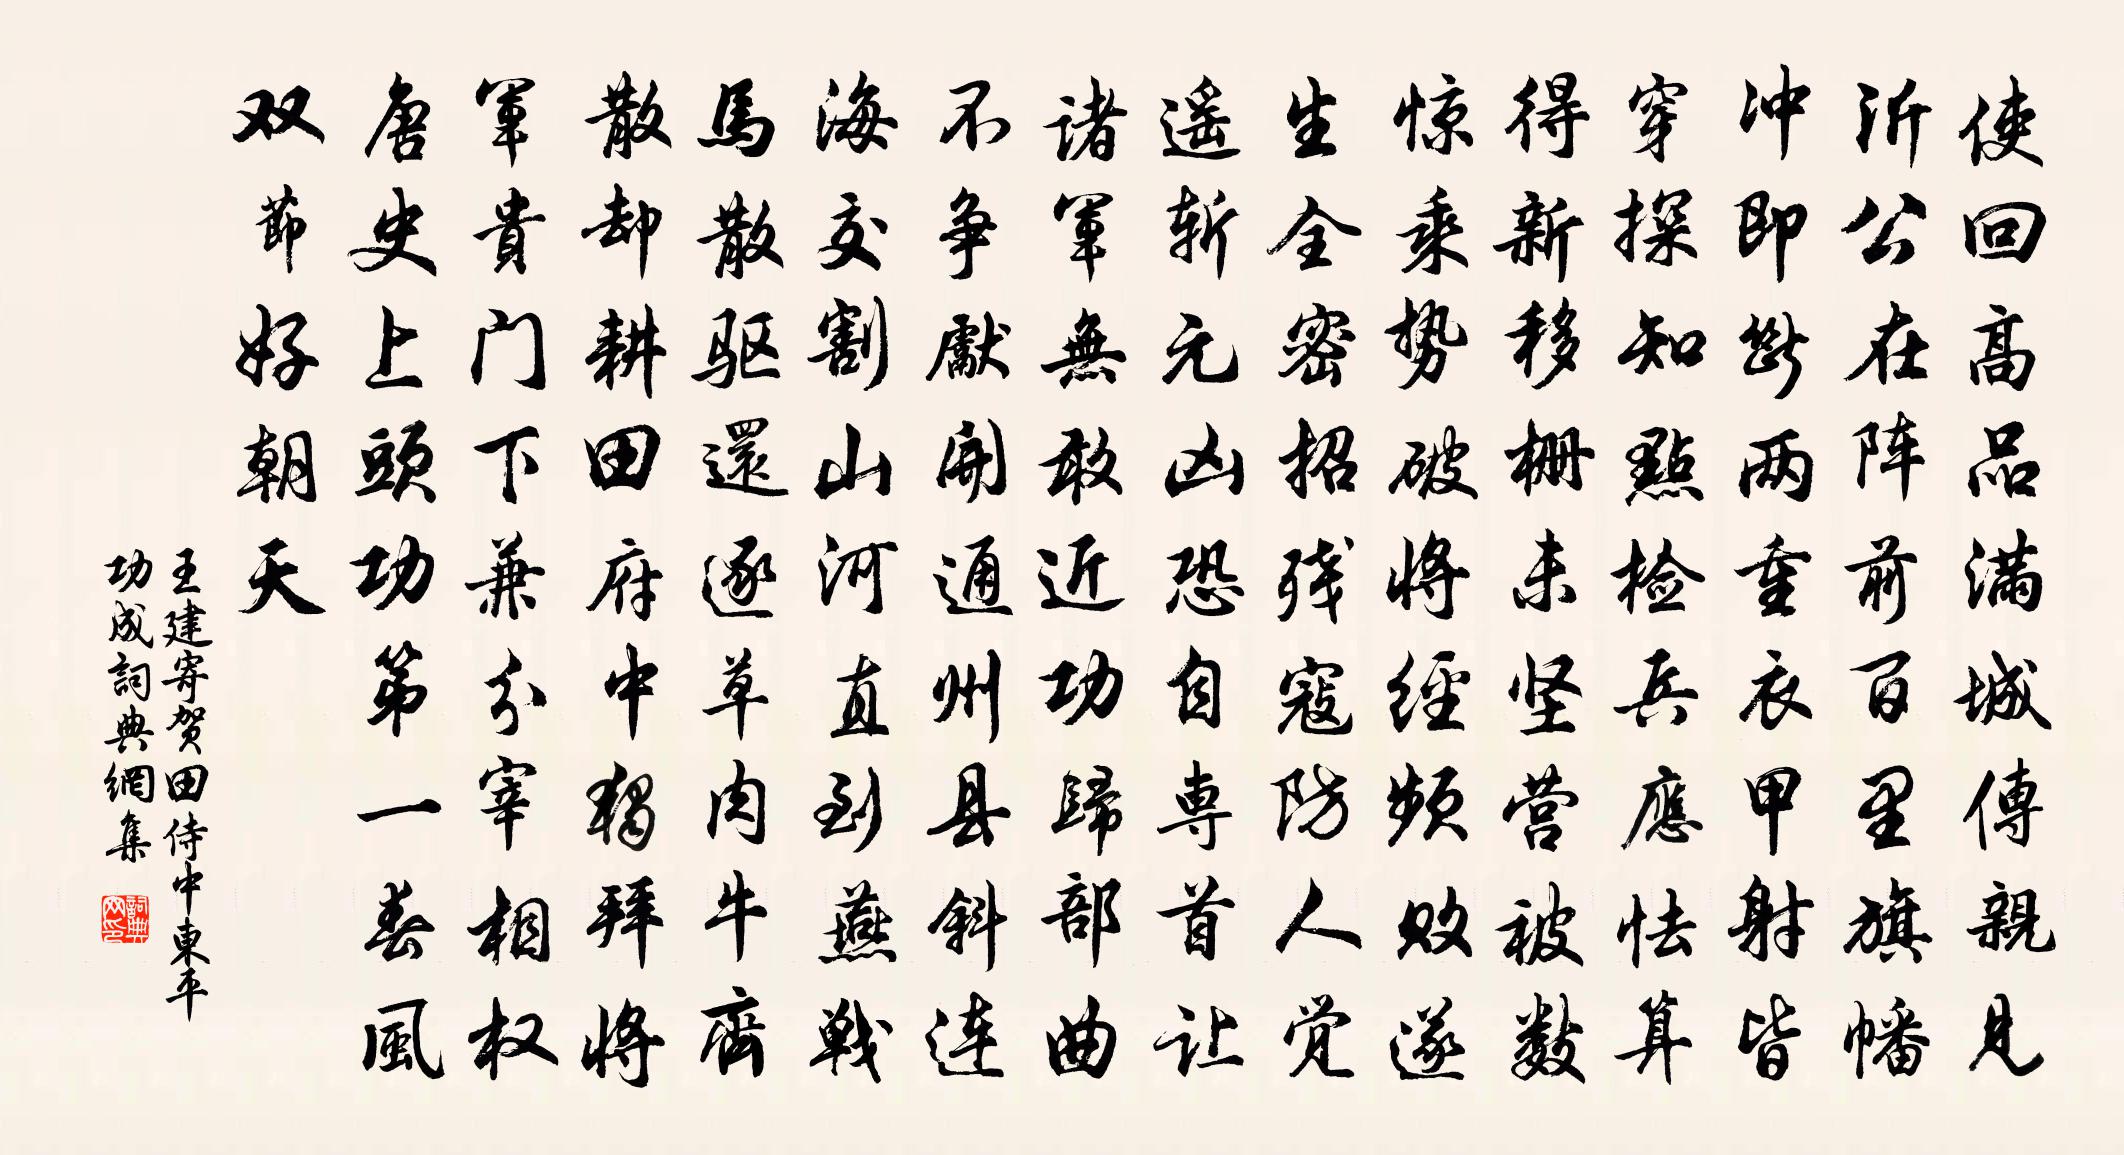 使回高品满城傳親見
沂公在阵前百里旗幡
冲即断两重衣甲射皆
穿探知點检兵應怯算
得新移栅未坚营被數
惊乘势破将經频败遂
生全密招残寇防人觉
遥斩元凶恐自専首让
诸軍無敢近功歸部曲
不争獻開通州县斜连
海交割山河直到燕戰
馬散驱還逐草肉牛齊
散却耕田府中独拜将
軍貴门下兼分宰相权
唐史上頭功第一春風
双節好朝天
王建寄贺田侍中東平
功成詞典網集
詞典网印